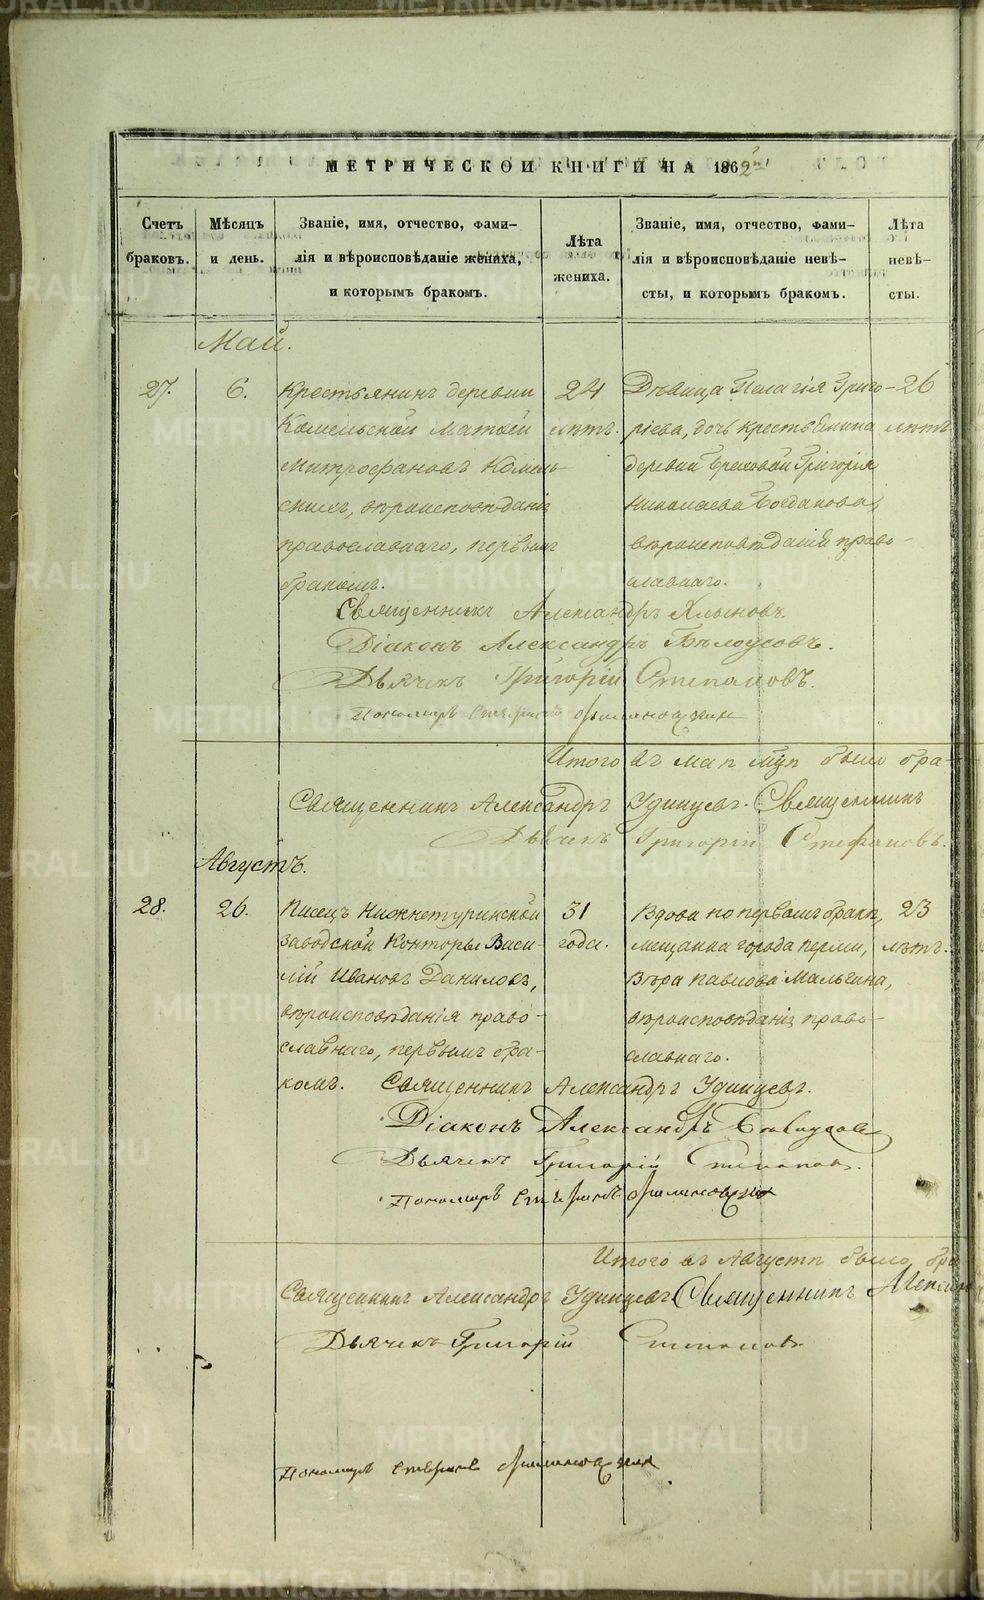 МЕТРИЧЕСКОЙ КНИГИ НА 1862
Счетъ браковъ.
Мѣсяцъ и день.
Званіе, имя, отчество, фами-
лія и вѣроисповѣданіе жениха,
и которымъ бракомъ.
Лѣта жениха.
Званіе, имя, отчество, фами-
лія и вѣроисповѣданіе невѣ-
сты, и которымъ бракомъ.
Лѣта невѣ-
сты.
Май.
27.
6.
Крестьянинъ деревни
Комельской Матвей
Митрофановъ Комель-
скихъ, вѣроисповѣданія
православнаго, первымъ
бракомъ.
24
лѣтъ.
Дѣвица Пелагія Григо-
рьева, дочь крестьянина
деревни Григорія
Николаева Богданова,
вѣроисповѣданія право-
славнаго.
26
лѣтъ
Священникъ Александръ Хлыновъ.
Діаконъ Александръ Бѣлоусовъ.
Дьячекъ Григорій Степановъ.
Пономарь
Итого въ маѣ мцѣ было бра-
Священникъ Александръ Удинцевъ. Священникъ
Дьячекъ Григорій Стефановъ.
Августъ.
28.
26.
Писецъ Нижнетуринской
заводской Конторы Васи-
лій Ивановъ Даниловъ,
вѣроисповѣданія право-
славнаго, первымъ бра-
комъ.
31
года.
Вдова по первомъ бракѣ,
мещанка города Перми,
Вѣра Павлова Мальгина,
вѣроисповѣданія право-
славнаго.
23
лѣтъ.
Священникъ Александръ Удинцевъ.
Діаконъ Александръ Бѣлоусовъ
Дьячекъ Григорій Степановъ.
Пономарь
Итого въ Августѣ было бра
Священникъ Александръ Удинцевъ Священникъ Алексан
Дьячекъ Григорій Степановъ.
Пономарь
METRIKI.GASO-URAL.RU